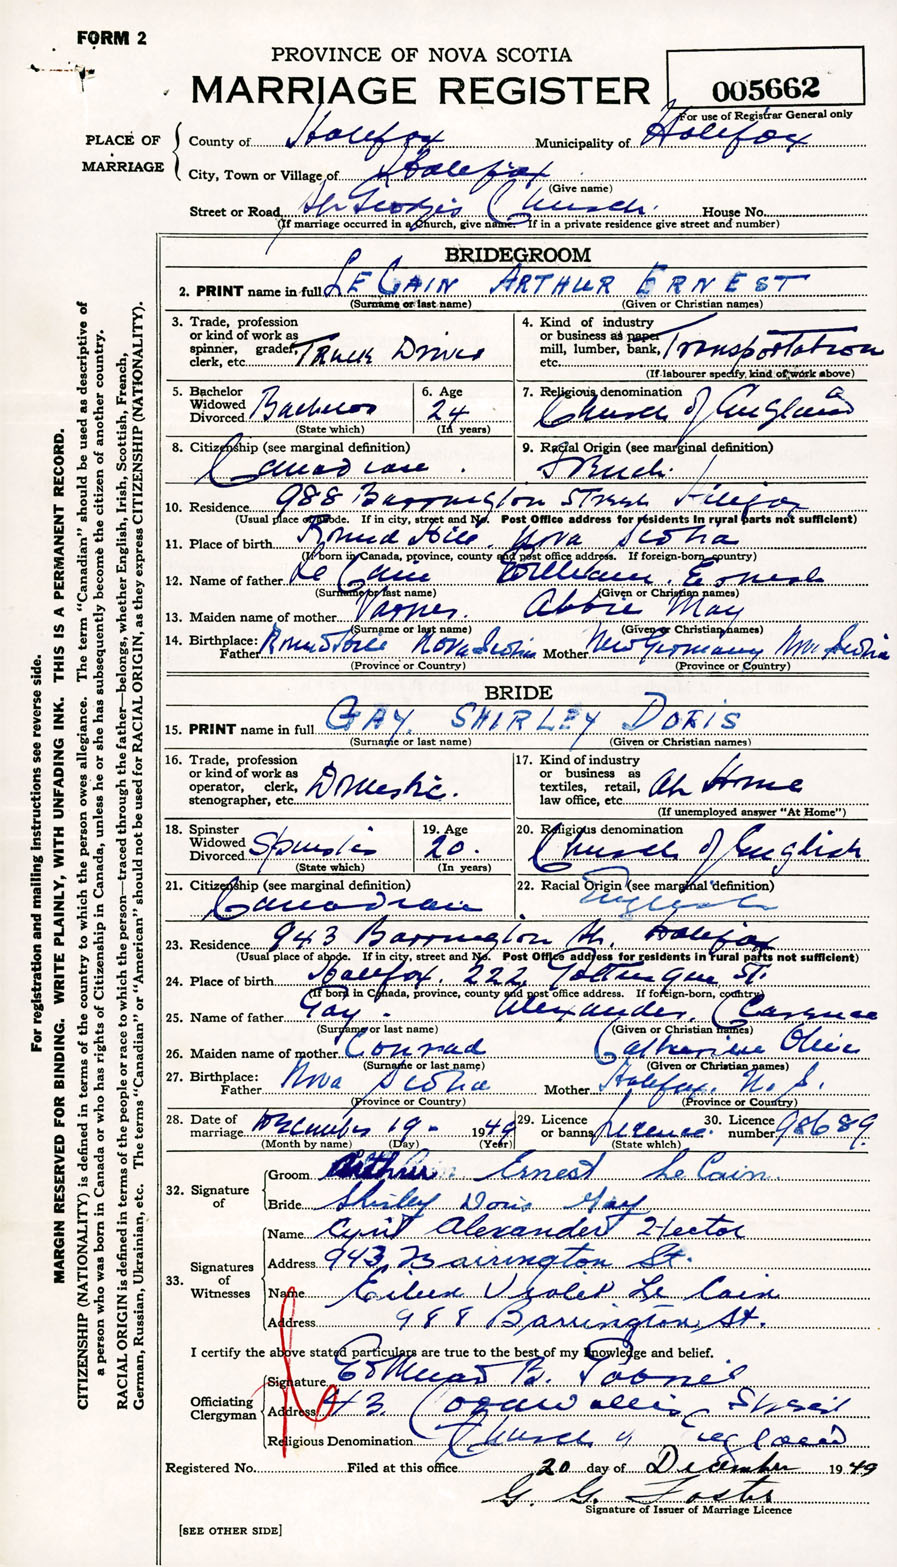 FORM 2
PROVINCE OF NOVA SCOTIA
MARRIAGE REGISTER
005662
For use of Registrar General only
PLACE OF MARRIAGE
County of Halifax Municipality of Halifax
City, Town or Village of Halifax
(Give name)
Street or Road St Georges Church. House No.
(If marriage occurred in a Church, give name. If in a private residence give street and number)
BRIDEGROOM
2. PRINT name in full LE CAIN ARTHUR ERNEST
(Surname or last name) (Given or Christian names)
3. Trade, profession or kind of work as spinner, grader, clerk, etc. Truck Driver
4. Kind of industry or business as paper mill, lumber, bank, etc. Transportation
(If labourer specify, kind of work above)
5. Bachelor Widowed Divorced Bachelor
(State which)
6. Age 24
(In years)
7. Religious denomination Church of England
8. Citizenship (see marginal definition) Canadian.
9. Racial Origin (see marginal definition) French.
10. Residence 988 Barrington Street Halifax
(Usual place of abode. If in city, street and No. Post Office address for residents in rural parts not sufficient)
11. Place of birth Round Hill. Nova Scotia
(If born in Canada, province, county and post office address. If foreign-born, country)
12. Name of father Le Cain William. Ernest
(Surname or last name) (Given or Christian names)
13. Maiden name of mother Varner. Abbie May
(Surname or last name) (Given or Christian names)
14. Birthplace: Father Round Hill Nova Scotia Mother New Germany Nova Scotia
(Province or Country) (Province or Country)
BRIDE
15. PRINT name in full GAY. SHIRLEY DORIS
(Surname or last name) (Given or Christian names)
16. Trade, profession or kind of work as operator, clerk, stenographer, etc. Domestic.
17. Kind of industry or business as textiles, retail, law office, etc. At Home
(If unemployed answer "At Home")
18. Spinster Widowed Divorced Spinster
(State which)
19. Age 20.
(In years)
20. Religious denomination Church of English
21. Citizenship (see marginal definition) Canadian
22. Racial Origin (see marginal definition) English
23. Residence 943 Barrington St. Halifax
(Usual place of abode. If in city, street and No. Post Office address for residents in rural parts not sufficient)
24. Place of birth Halifax. 222 Gottingen St.
(If born in Canada, province, county and post office address. If foreign-born, country)
25. Name of father Gay. Alexander. Clarence
(Surname or last name) (Given or Christian names)
26. Maiden name of mother Conrad Catherine Olive
(Surname or last name) (Given or Christian names)
27. Birthplace: Father Nova Scotia Mother Halifax. N. S.
(Province or Country) (Province or Country)
28. Date of marriage December 19- 1949
(Month by name) (Day) (Year)
29. Licence or banns licence.
(State which)
30. Licence number 98689
32. Signature of
Groom Arthur Ernest Le Cain.
Bride Shirley Doris Gay
33. Signatures of Witnesses
Name Cyril Alexander Hector
Address 943 Barrington St.
Name Eileen Violet Le Cain
Address 988 Barrington St.
I certify the above stated particulars are true to the best of my knowledge and belief.
Officiating Clergyman
Signature Edmund B.
Address 43. Cornwallis Street
Religious Denomination Church of England
Registered No. Filed at this office 20 day of December 1949
G. G. Foster
Signature of Issuer of Marriage Licence
[SEE OTHER SIDE]
For registration and mailing instructions see reverse side.
MARGIN RESERVED FOR BINDING. WRITE PLAINLY, WITH UNFADING INK. THIS IS A PERMANENT RECORD.
CITIZENSHIP (NATIONALITY) is defined in terms of the country to which the person owes allegiance. The term "Canadian" should be used as descriptive of
a person who was born in Canada or who has rights of Citizenship in Canada, unless he or she has subsequently become the citizen of another country.
RACIAL ORIGIN is defined in terms of the people or race to which the person—traced through the father—belongs, whether English, Irish, Scottish, French,
German, Russian, Ukrainian, etc. The terms "Canadian" or "American" should not be used for RACIAL ORIGIN, as they express CITIZENSHIP (NATIONALITY).